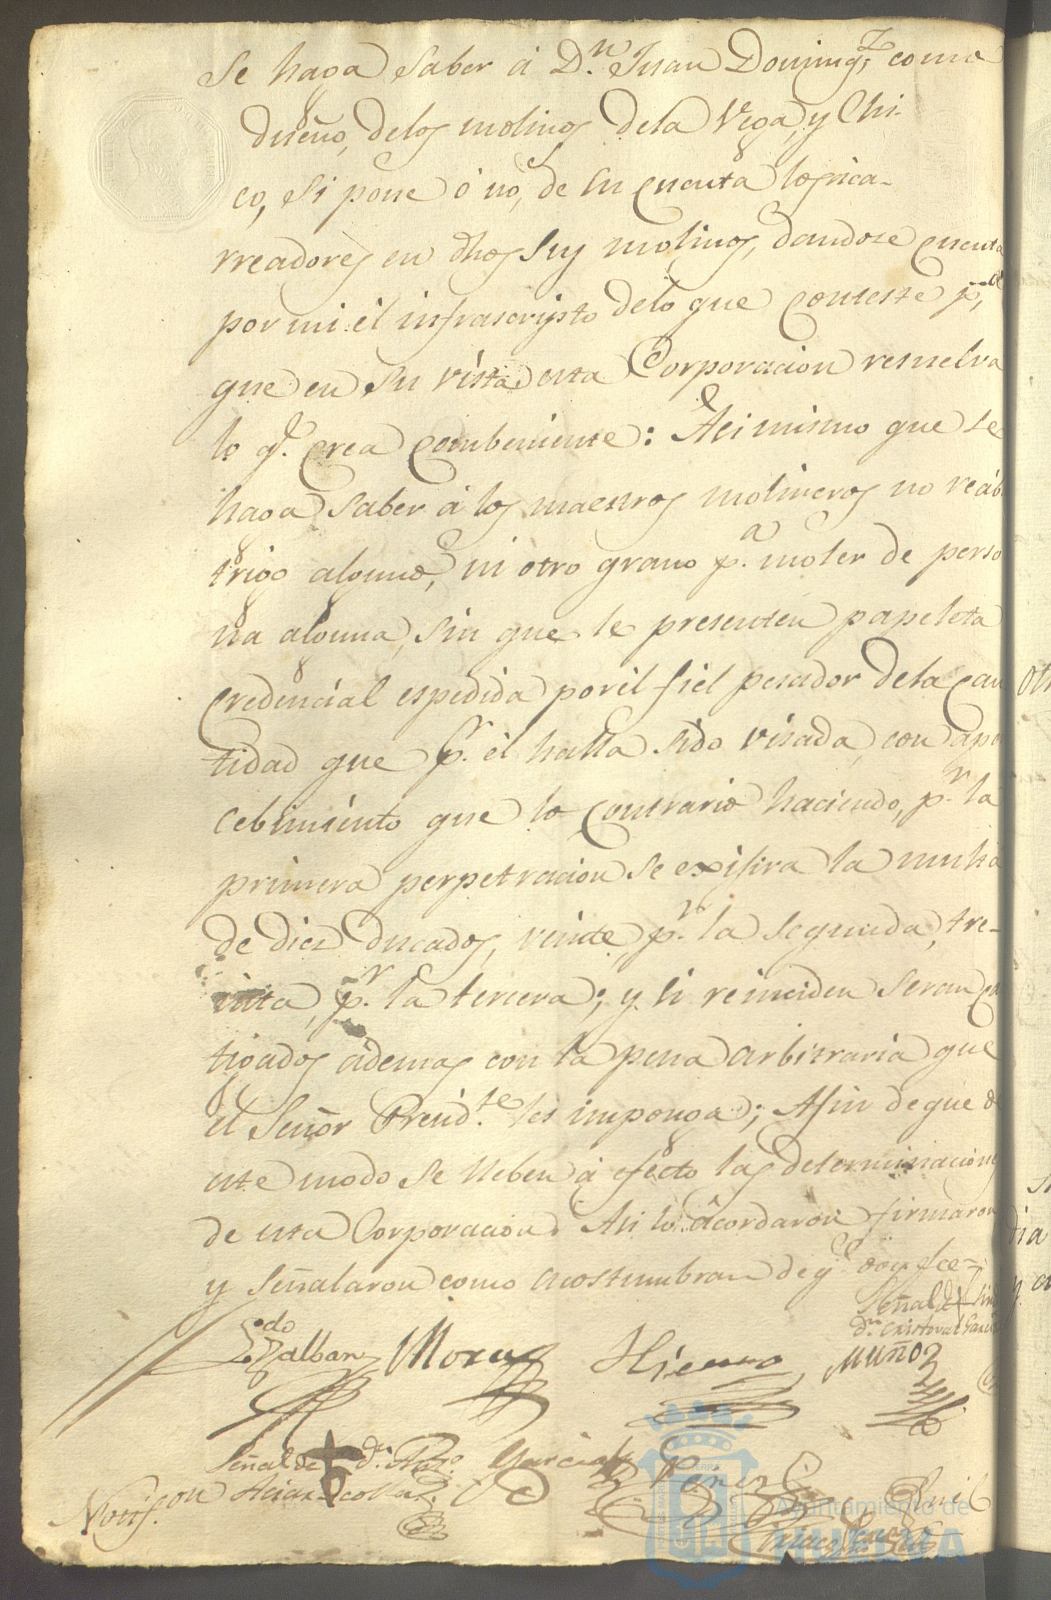 Se haga saber á D.n Juan Doming.z como
dueño, delos molinos dela Vega, y Chi-
co, si pone ó nó, de su cuenta los aca-
rreadores en dhos sus molinos, dandose cuenta
por mi él infrascripto delo que conteste p.a
que en su vista esta Corporacion resuelva
lo q.e crea combeniente: Asi mismo que se
haga saber á los maestros molineros no recib
trigo alguno, ni otro grano p.a moler de perso
na alguna, sin que le presenten papeleta
credencial espedida por él fiel pesador dela can
tidad que p.r él halla sido visada, con ape
cebimiento que lo contrario haciendo, p.r la
primera perpetracion se exijira la multa
de diez ducados, veinte p.r la segunda, tre-
inta, p.r la tercera; y si reinciden seran cas
tigados ademas con la pena arbitraria que
el Señor Presid.te les imponga; Afin de que de
este modo se lleben á efecto las determinaciones
de esta Corporacion. Asi lo acordaron firmaron
y señalaron como acostumbran de q.e doy fee=
Señal de + 
D.n Cristoval Garcia
Muñoz
Mora
Hierro
Señal de + d.n
Garcia
Perez
Notif.on
Ayuntamiento de
HUELVA